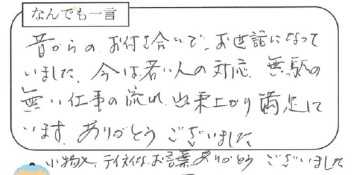 なんでも一言
昔からのお付き合いで、お世話になって
いました。今は若い人の対応、無駄の
無い仕事の流れ、出来上がり満足して
います。ありがとうございました
小物入、テイネイなお言葉ありがとうございました